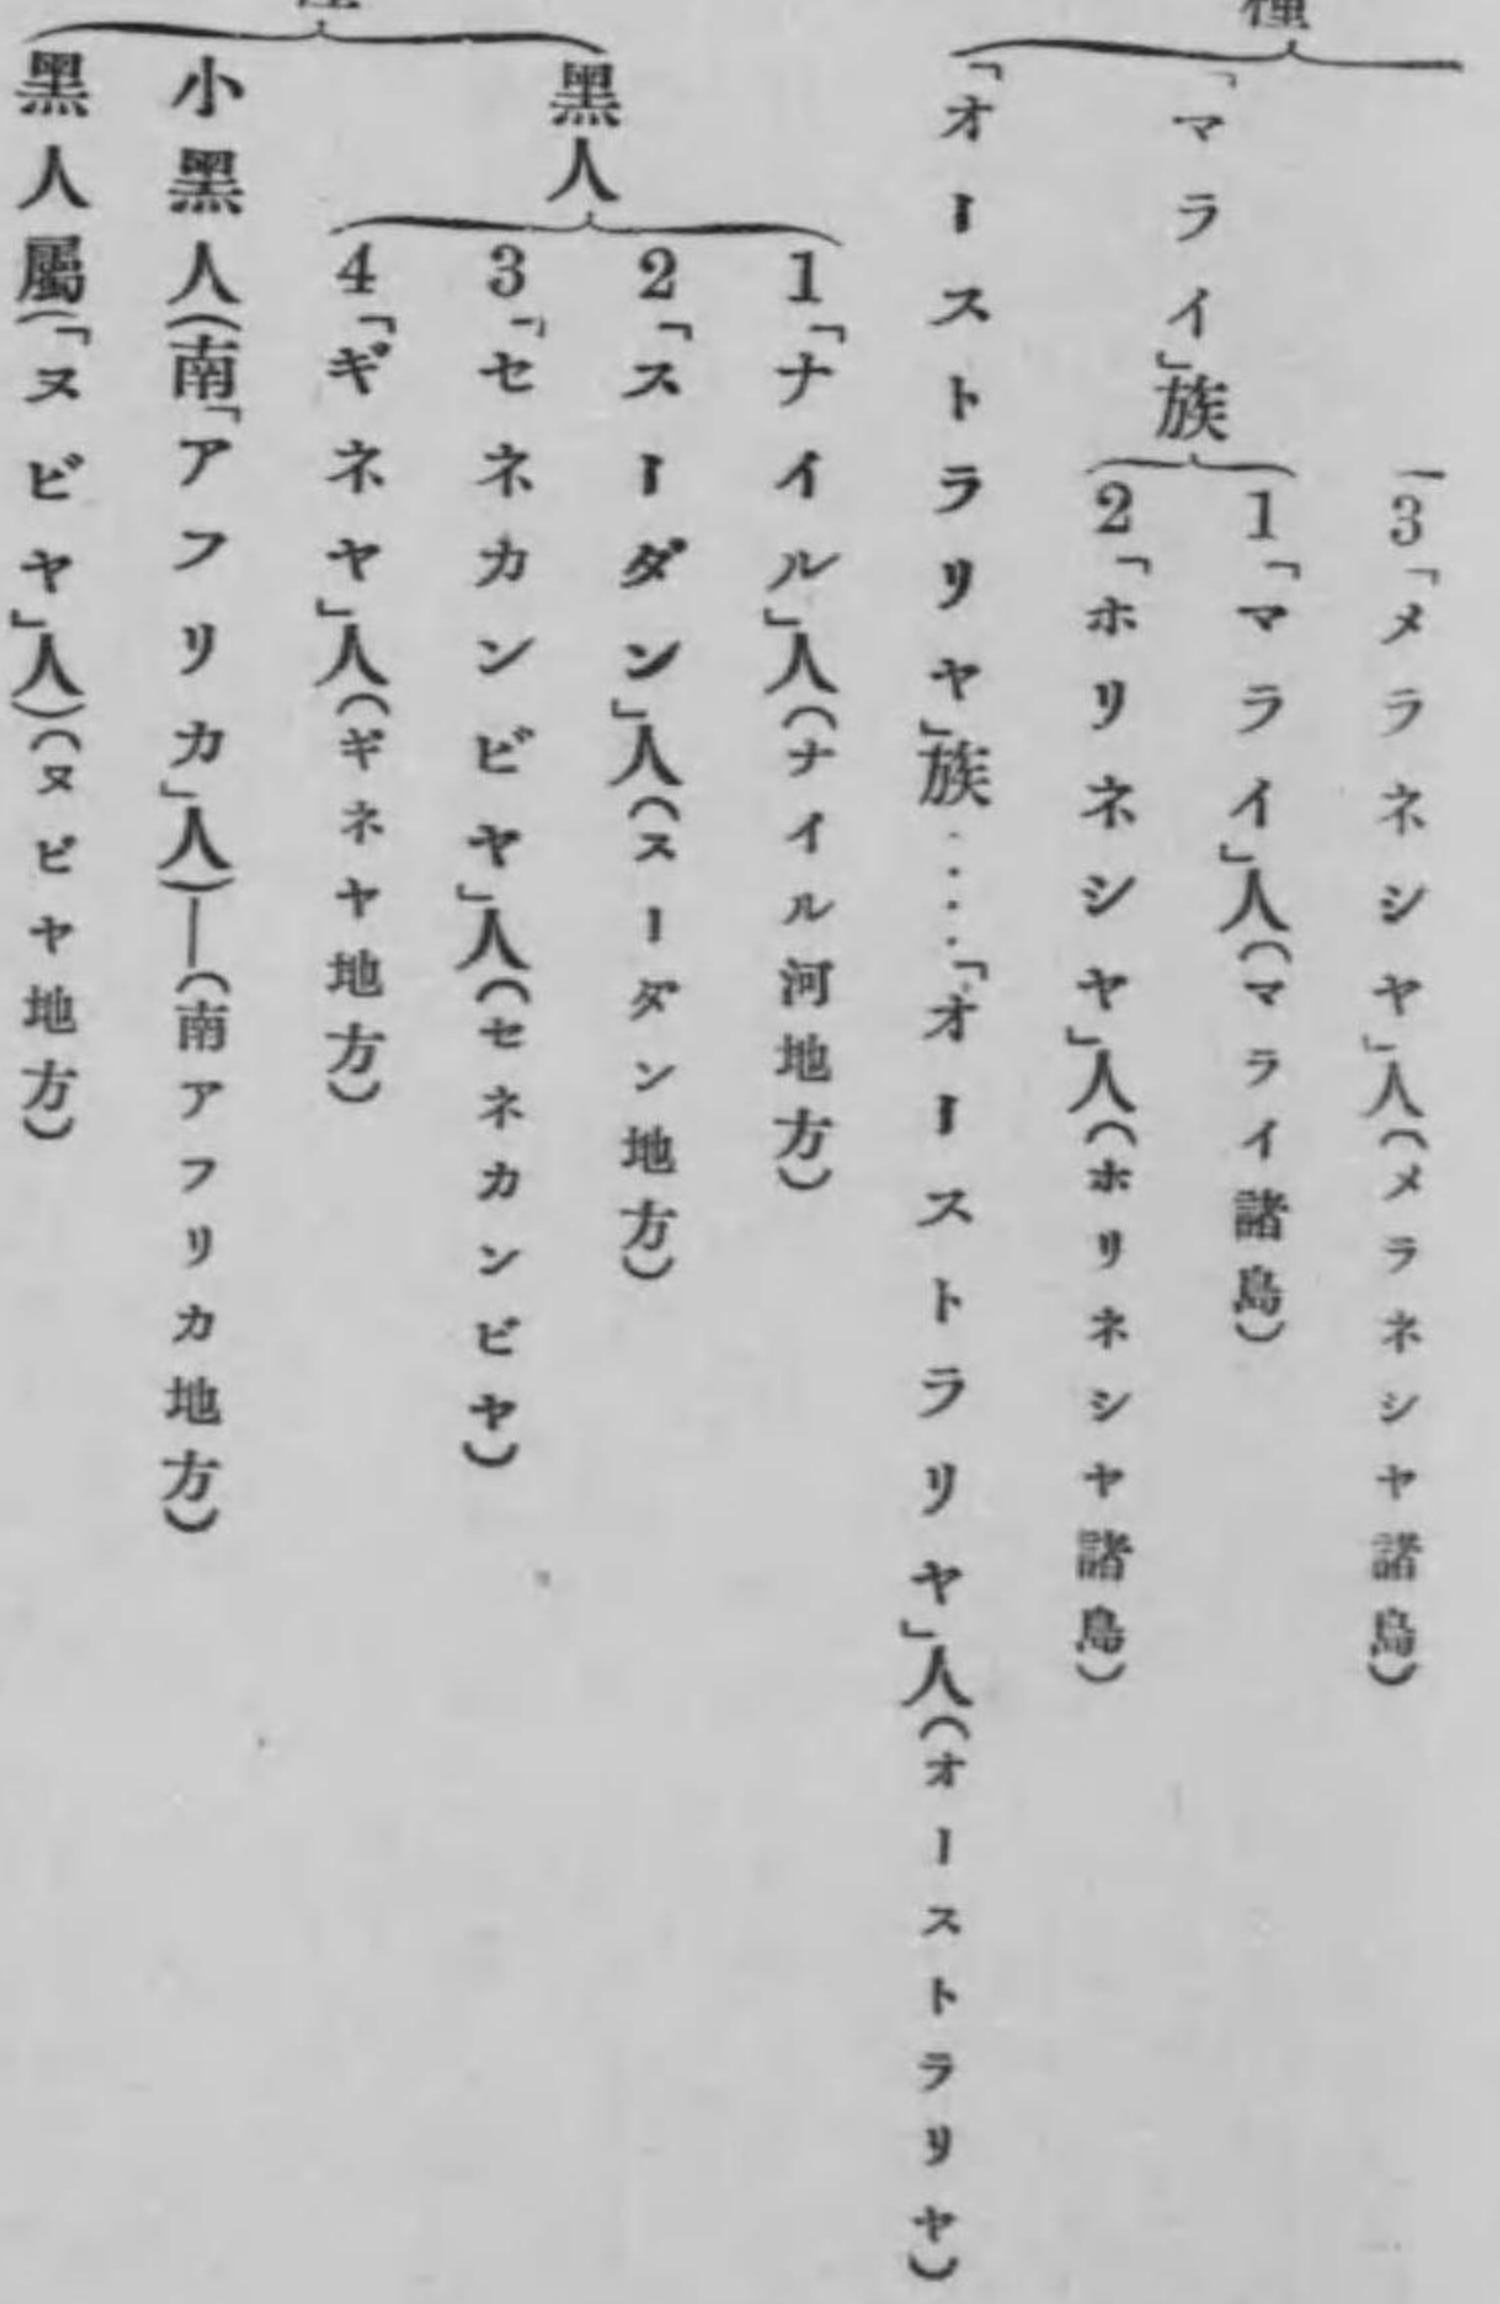 種
3「メラネシヤ」人(メラネシヤ諸島)
「マライ」族
1「マライ」人(マライ諸島)
2「ホリネシヤ」人(ホリネシヤ諸島)
「オーストラリヤ」族····「オーストラリヤ」人(オーストラリヤ)
黑人
1「ナイル」人(ナイル河地方)
2「スーダン」人(スーダン地方)
3「セネカンビヤ」人(セネカンビヤ)
4「ギネヤ」人(ギネヤ地方)
小黑人(南「アフリカ」人)—(南アフリカ地方)
黑人屬(「ヌビヤ」人)(ヌビヤ地方)